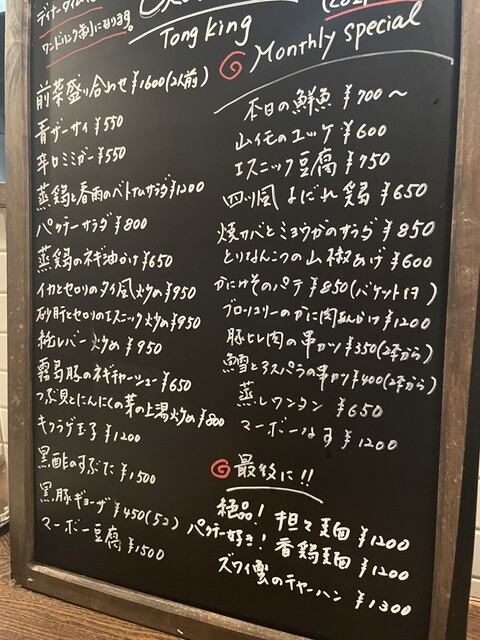 ディナータイムは
ワンドリンク制になります。
Tong King
Monthly special
前菜盛り合わせ ¥1600(2人前)
青ザーサイ ¥550
辛口ミミガー ¥550
蒸鶏と春雨のベトナムサラダ ¥1200
パクチーサラダ ¥800
蒸鶏のネギ油かけ ¥650
イカとセロリのタイ風炒め ¥950
砂肝とセロリのエスニック炒め ¥950
純レバー炒め ¥950
霧島豚のネギチャーシュー ¥650
つぶ貝とにんにくの芽の上湯炒め ¥800
キクラゲ玉子 ¥1200
黒酢のすぶた ¥1500
黒豚ギョーザ ¥450(5コ)
マーボー豆腐 ¥1500
本日の鮮魚 ¥700〜
山芋のユッケ ¥600
エスニック豆腐 ¥750
四川風よだれ鶏 ¥650
焼カベとミョウガのサラダ ¥850
とりなんこつの山椒あげ ¥600
かにみそのパテ ¥850(バケット付)
ブロッコリーのかに肉あんかけ ¥1200
豚ヒレ肉の串カツ ¥350(2本から)
鱈とアスパラの串カツ ¥400(2本から)
蒸しワンタン ¥650
マーボーなす ¥1200
最後に!!
絶品! 担々麺 ¥1200
パクチー好き! 香鶏麺 ¥1200
ズワイ蟹のチャーハン ¥1300